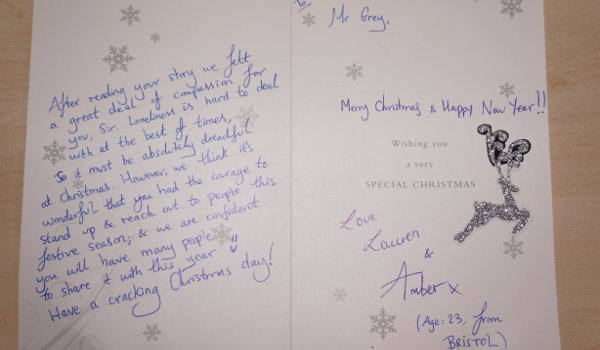 After reading your story we felt
a great deal of compassion for
you, Sir. Loneliness is hard to deal
with at the best of times,
So it must be absolutely dreadful
at Christmas. However, we think it's
wonderful that you had the courage to
stand up & reach out to people this
festive season, & we are confident
you will have many people
to share it with this year
Have a cracking Christmas day!
To
Mr Grey,
Merry Christmas & Happy New Year!!
Wishing you
a very
SPECIAL CHRISTMAS
Love
Lauren
&
Amber x
(Age: 23, from
BRISTOL)